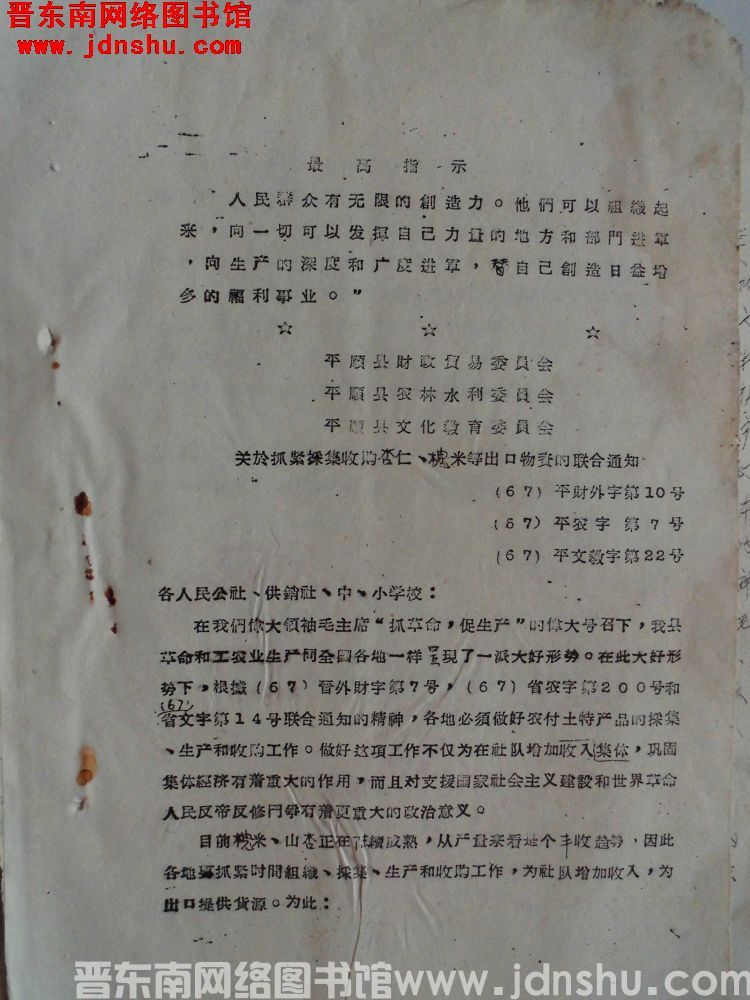 晋东南网络图书馆
www.jdnshu.com
最高指示
人民群众有无限的創造力。他們可以組織起
来，向一切可以发挥自己力量的地方和部門进軍
，向生产的深度和广度进軍，替自己創造日益增
多的福利事业。”
☆ ☆ ☆
平順县財政貿易委員会
平順县农林水利委員会
平順县文化教育委員会
关於抓紧採集收购杏仁、槐米等出口物資的联合通知
(67)平財外字第10号
(67)平农字 第7号
(67)平文教字第22号
各人民公社、供銷社、中、小学校：
在我們偉大領袖毛主席“抓革命，促生产”的偉大号召下，我县
革命和工农业生产同全国各地一样呈現了一派大好形势。在此大好形
势下，根據(67)晉外財字第7号，(67)省农字第200号和
(67)
省文字第14号联合通知的精神，各地必須做好农付土特产品的採集
、生产和收购工作。做好这項工作不仅为在社队增加收入集体，巩固
集体經济有着重大的作用，而且对支援國家社会主义建設和世界革命
人民反帝反修鬥爭有着更重大的政治意义。
目前槐米、山杏正在陆續成熟，从产量来看是个丰收趋势，因此
各地要抓紧时間組織、採集、生产和收购工作，为社队增加收入，为
出口提供貨源。为此：
晋东南网络图书馆www.jdnshu.com